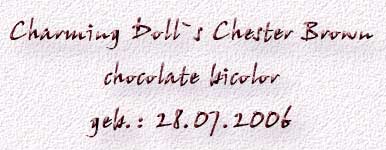 Charming Doll`s Chester Brown
chocolate bicolor
geb.: 28.07.2006